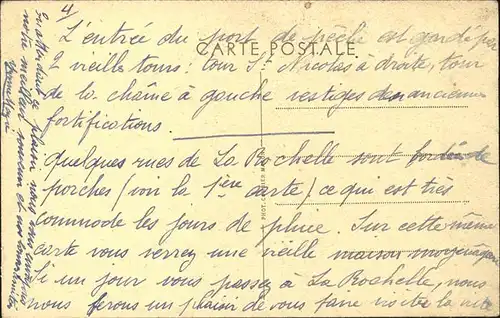 4/
L'entrée du port de pêche est gardé par
2 vieilles tours : tour St Nicolas à droite, tour
CARTE POSTALE
de la chaîne à gauche vestiges des anciennes
fortifications.
Quelques rues de La Rochelle sont bordées de
porches (voir la 1ère carte) ce qui est très
commode les jours de pluie. Sur cette même
carte vous verrez une vieille maison moyenâgeuse
Si un jour vous passez à La Rochelle, nous
nous ferons un plaisir de vous faire visiter la ville
En attendant ce plaisir nous vous
notre meilleur souvenir et nos